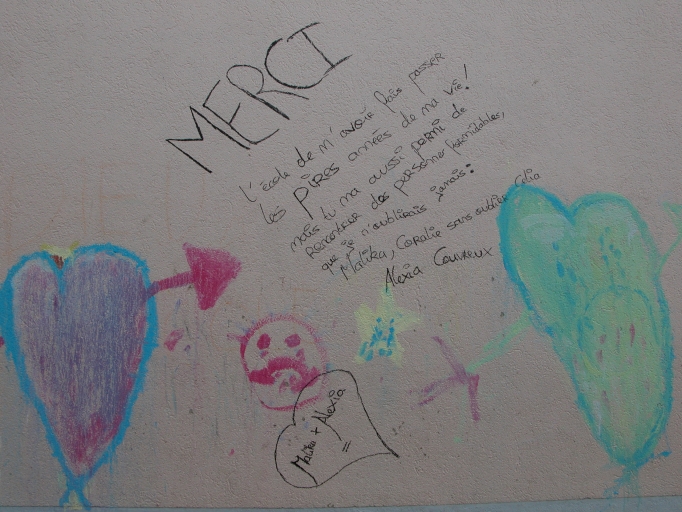 MERCI
l'école de m'avoir fais passer
les PIRES années de ma vie!
mais tu ma aussi permi de
RENCONTRER des personner formidables,
que je n'oublirais jamais:
Malika, Coralie sans oublier Célia
Alexia Couvreux
Malika + Alexia
=